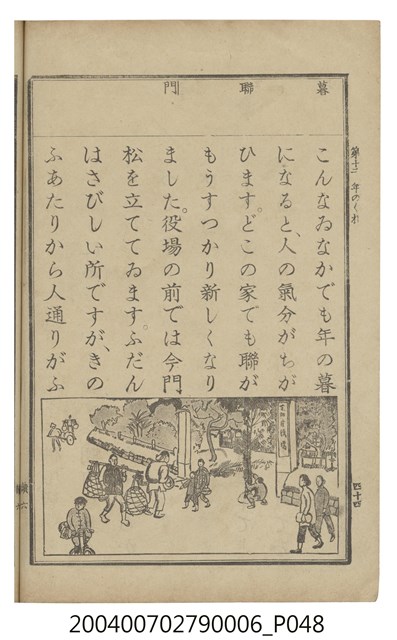 第十二 年のくれ
暮
聯
門
こんなゐなかでも年の暮
になると、人の氣分がちが
ひます。どこの家でも聯が
もうすつかり新しくなり
ました。役場の前では今門
松を立ててゐます。ふだん
はさびしい所ですが、きの
ふあたりから人通りがふ
四十四
200400702790006_P048